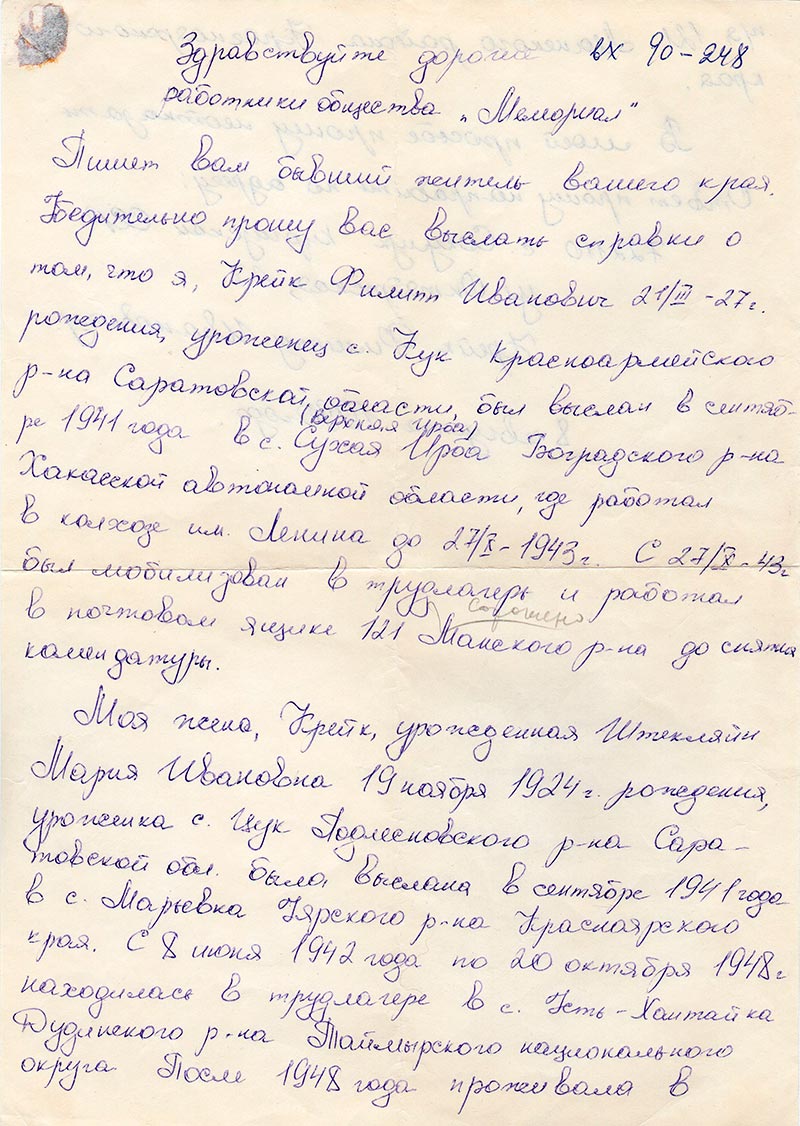 Здравствуйте дорогие вх 90-248
работники общества „Мемориал"
Пишет вам бывший житель вашего края.
Убедительно прошу вас выслать справки о
том, что я, Крейк Филипп Иванович 21/III-27г.
рождения, уроженец с. Кук Красноармейского
р-на Саратовской области, был выслан в сентяб-
ре 1941 года в с. Сухая Ирба Боградского р-на
(Верхняя Ирба)
Хакасской автономной области, где работал
в колхозе им. Ленина до 27/X-1943г. С 27/X-43г
был мобилизован в трудлагерь и работал
в почтовом ящике 121 Манского р-на до снятия
комендатуры.
Моя жена, Крейк, урожденная Штекляйн
Мария Ивановна 19 ноября 1924г. рождения,
уроженка с. Цук Подлесновского р-на Сара-
товской обл. была выслана в сентябре 1941 года
в с. Марьевка Уярского р-на Красноярского
края. С 8 июня 1942 года по 20 октября 1948г
находилась в трудлагере в с. Усть-Хантайка
Дудинского р-на Таймырского национального
округа После 1948 года проживала в